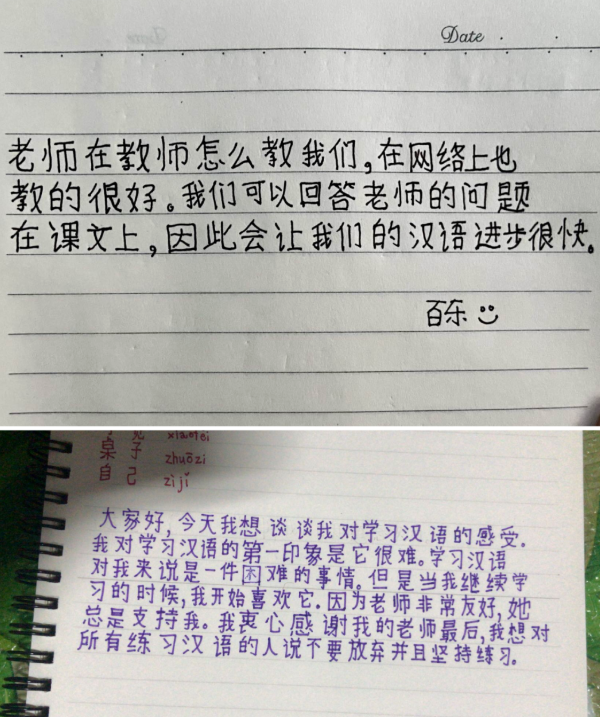 Date
老师在教师怎么教我们,在网络上也
教的很好。我们可以回答老师的问题
在课文上,因此会让我们的汉语进步很快。
百乐
xiǎo
桌子 zhuōzi
自己 zìjǐ
大家好,今天我想谈谈我对学习汉语的感受.
我对学习汉语的第一印象是它很难。学习汉语
对我来说是一件困难的事情。但是当我继续学
习的时候,我开始喜欢它.因为老师非常友好,她
总是支持我。我衷心感谢我的老师最后,我想对
所有练习汉语的人说不要放弃并且坚持练习.